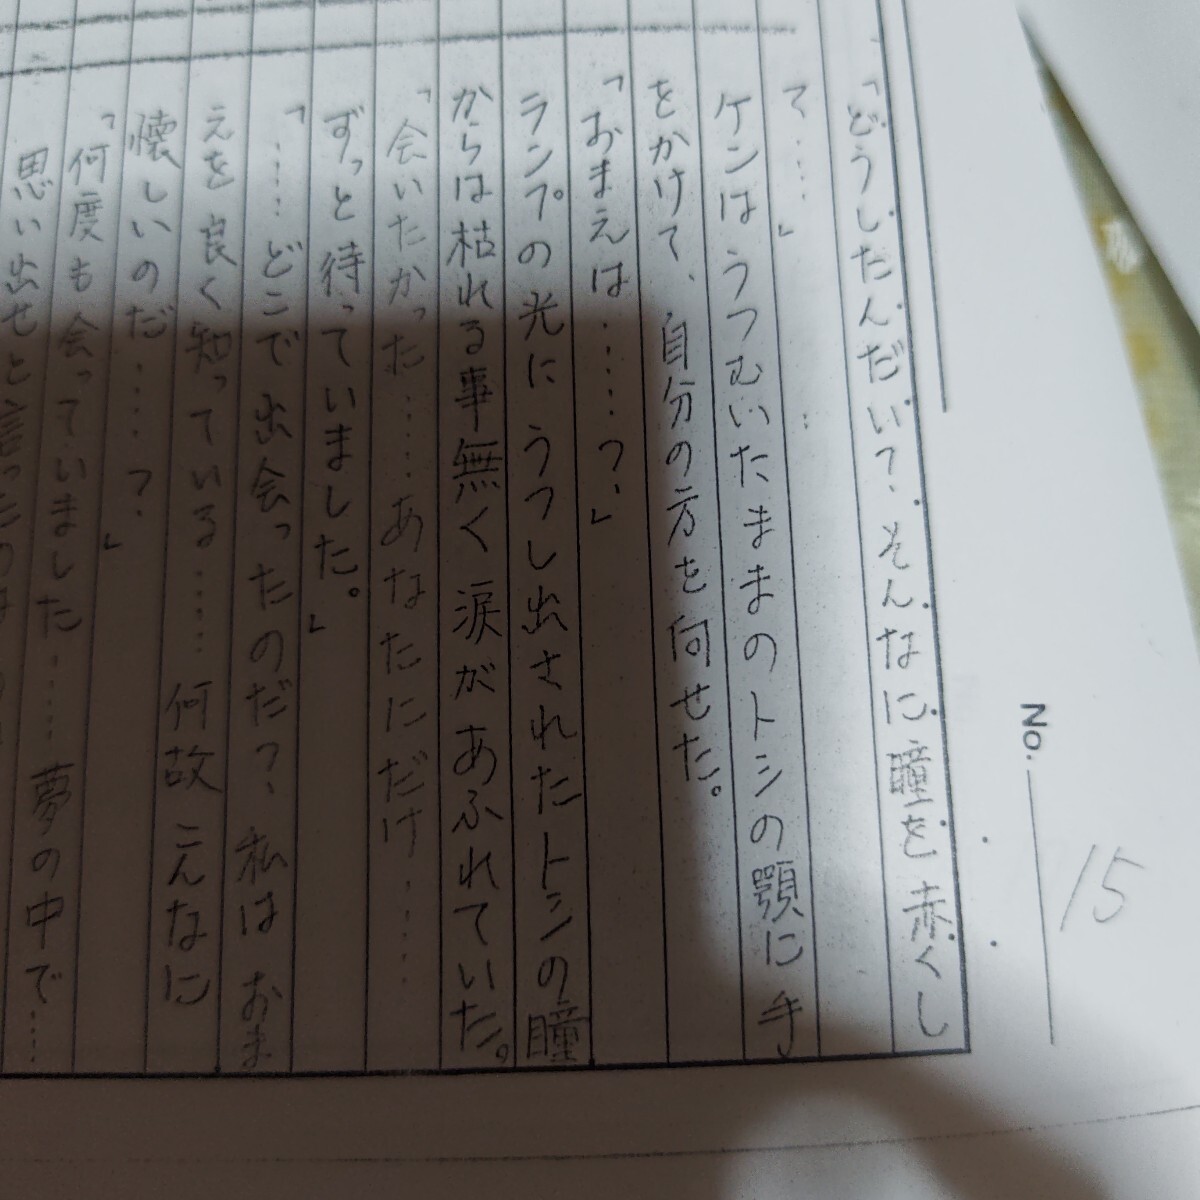 No. 15
「どうしたんだい？そんなに瞳を赤くし
て‥‥」
ケンはうつむいたままのトシの顎に手
をかけて、自分の方を向せた。
「おまえは‥‥‥？」
ランプの光にうつし出されたトシの瞳
からは枯れる事無く涙があふれていた。
「会いたかった‥‥‥あなたにだけ‥‥‥
ずっと待っていました。」
「‥‥‥どこで出会ったのだ？私はおま
えを良く知っている‥‥‥何故こんなに
懐しいのだ‥‥‥？」
「何度も会っていました‥‥‥夢の中で‥‥
思い出せと言ったのは